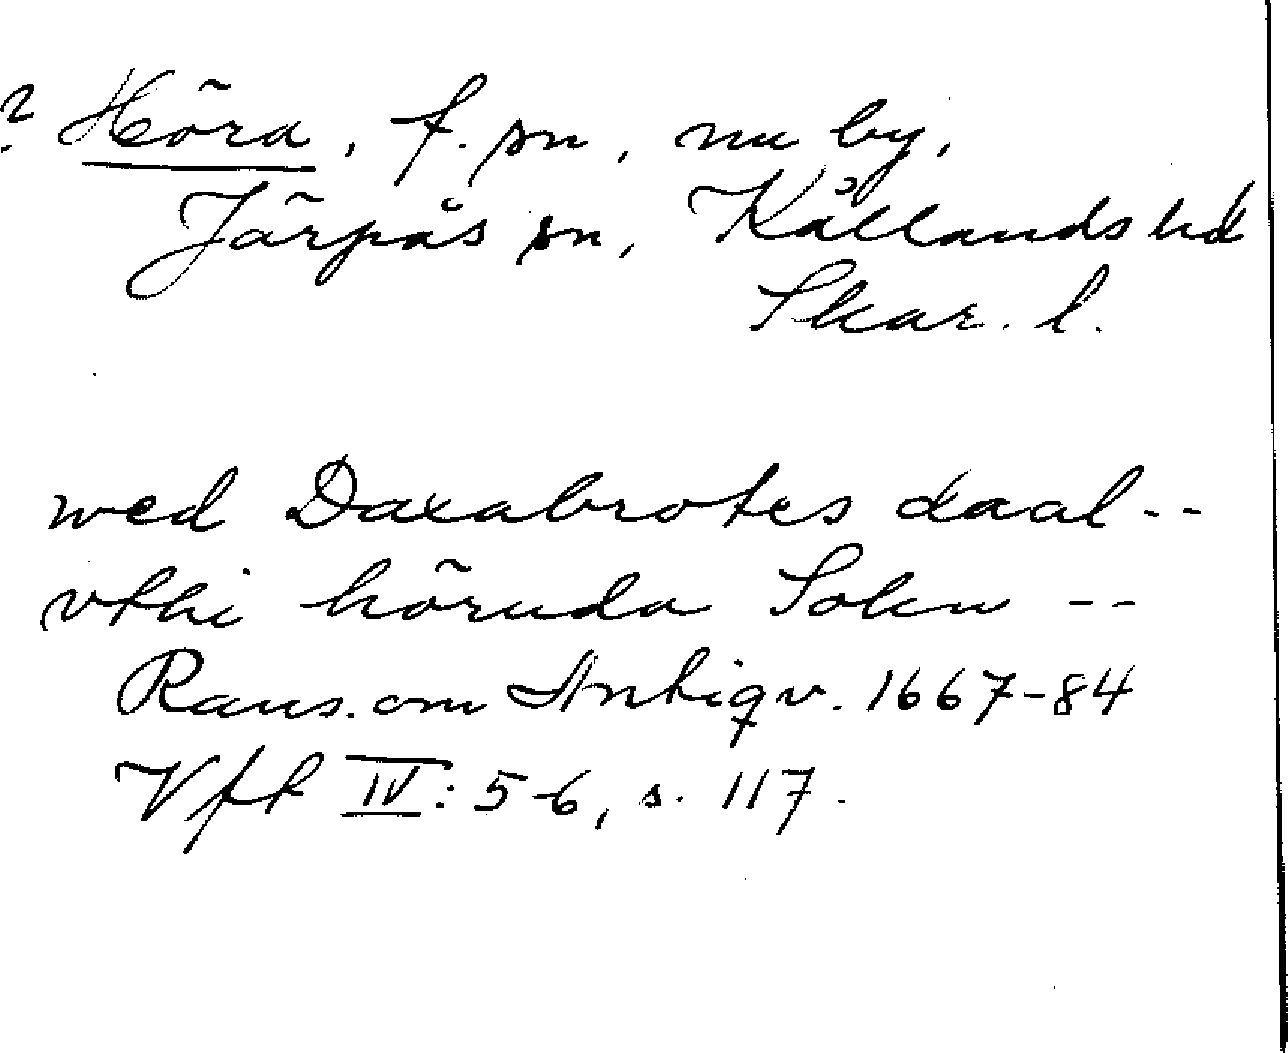 ? Höra, f. sn, nu by,
Järpås sn, Kållands hd
Skar. l.
wed Daxabrotes daal--
vthi höruda Sokn --
Rans. om Antiqv. 1667-84
Vft IV: 5-6, s. 117.